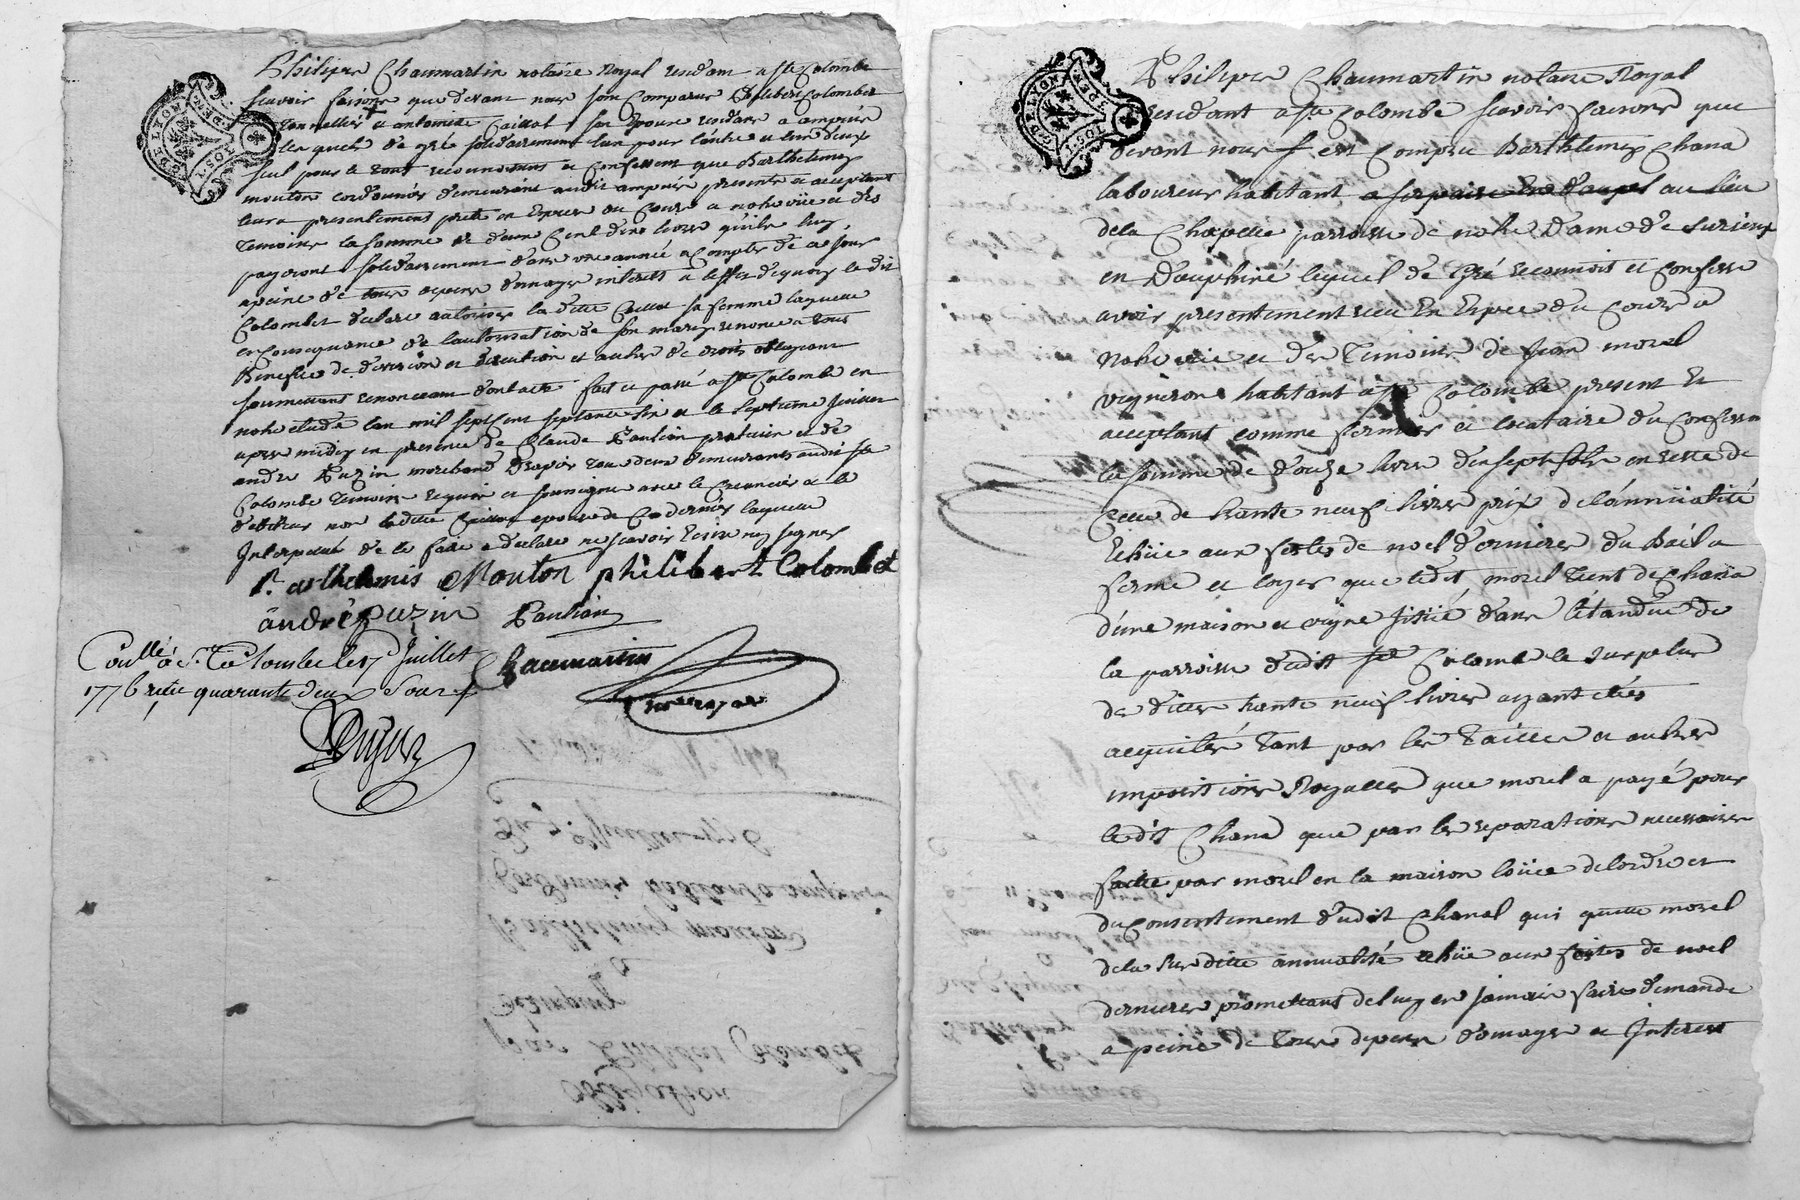 Philipe Chaumartin notaire Royal residant a Ste Colombe
scavoir faisons que devant nous sont comparus Philibert Colombet
tonnellier et antoinette Caillot son Epouse residans a ampuis
lesquels de gré solidairement l'un pour l'autre un d'eux
seul pour le tout reconnoissent et confessent que Barthelemy
mouton cordonnier demeurant audit ampuis present et acceptant
leur a presentement preté en Especes du Cours a notre vüe et des
temoins la somme de Cent dix livres qu'ils luy
payeront solidairement dans une année a compter de ce jour
a peine de tous depens dommages interets a l'effet de quoy le dit
Colombet declare autoriser la ditte Caillot sa femme laquelle
en consequence de l'autorisation de son mary renonce a tous
Benefice de division et discution et autres de droits obligeant
soumettant renonceant dont acte fait et passé a Ste Colombe en
notre etude l'an mil sept cent septante six et le septieme juillet
apres midy en presence de Claude Paulian praticien et de
andré Puzin marchand Drapier tous deux demeurants audit Ste
Colombe temoins requis et soussignes avec le Creancier et le
debiteur non ladite Caillot epouse de ce dernier laquelle
Interpellée de le faire a declaré ne scavoir Ecrire ny signer
Barthelemis Mouton philibert Colombet
andré puzin Paulian
Chaumartin
nore royal
Conllé a Ste Colombe le 17 Juillet
1776 reçu quarante deux sous
DE LYON
Philipe Chaumartin notaire Royal
residant a Ste Colombe scavoir faisons que
devant nous est comparu Barthelemy Chana
laboureur habitant au lieu
de la Chapelle parroisse de notre Dame de Surieux
en Dauphiné lequel de gré reconnoit et confesse
avoir presentement reçu En Espece du Cours a
notre vüe et des temoins de Jean morel
vigneron habitant a Ste Colombe present et
acceptant comme fermier et locataire du confessant
la somme de douze livres dix sept sols en reste de
celle de trante neuf livres prix de l'annuialité
Echüe aux festes de noel dernieres du Bail a
ferme et loyer que ledit morel tient de Chana
d'une maison et vigne sitüé dans l'étandüe de
la parroisse dudit Ste Colombe le surplus
de dittes trante neuf livres ayant étés
acquités tant par les tailles et autres
impositions Royalles que morel a payé pour
le dit Chana que par les reparations necessaires
faitte par morel en la maison loüée de l'ordre et
du consentement dudit Chanal qui quitte morel
de la sur ditte annualité echüe aux festes de noel
dernieres promettant de luy en jamais faire demande
a peine de tous depens domages et Interest
DE LYON